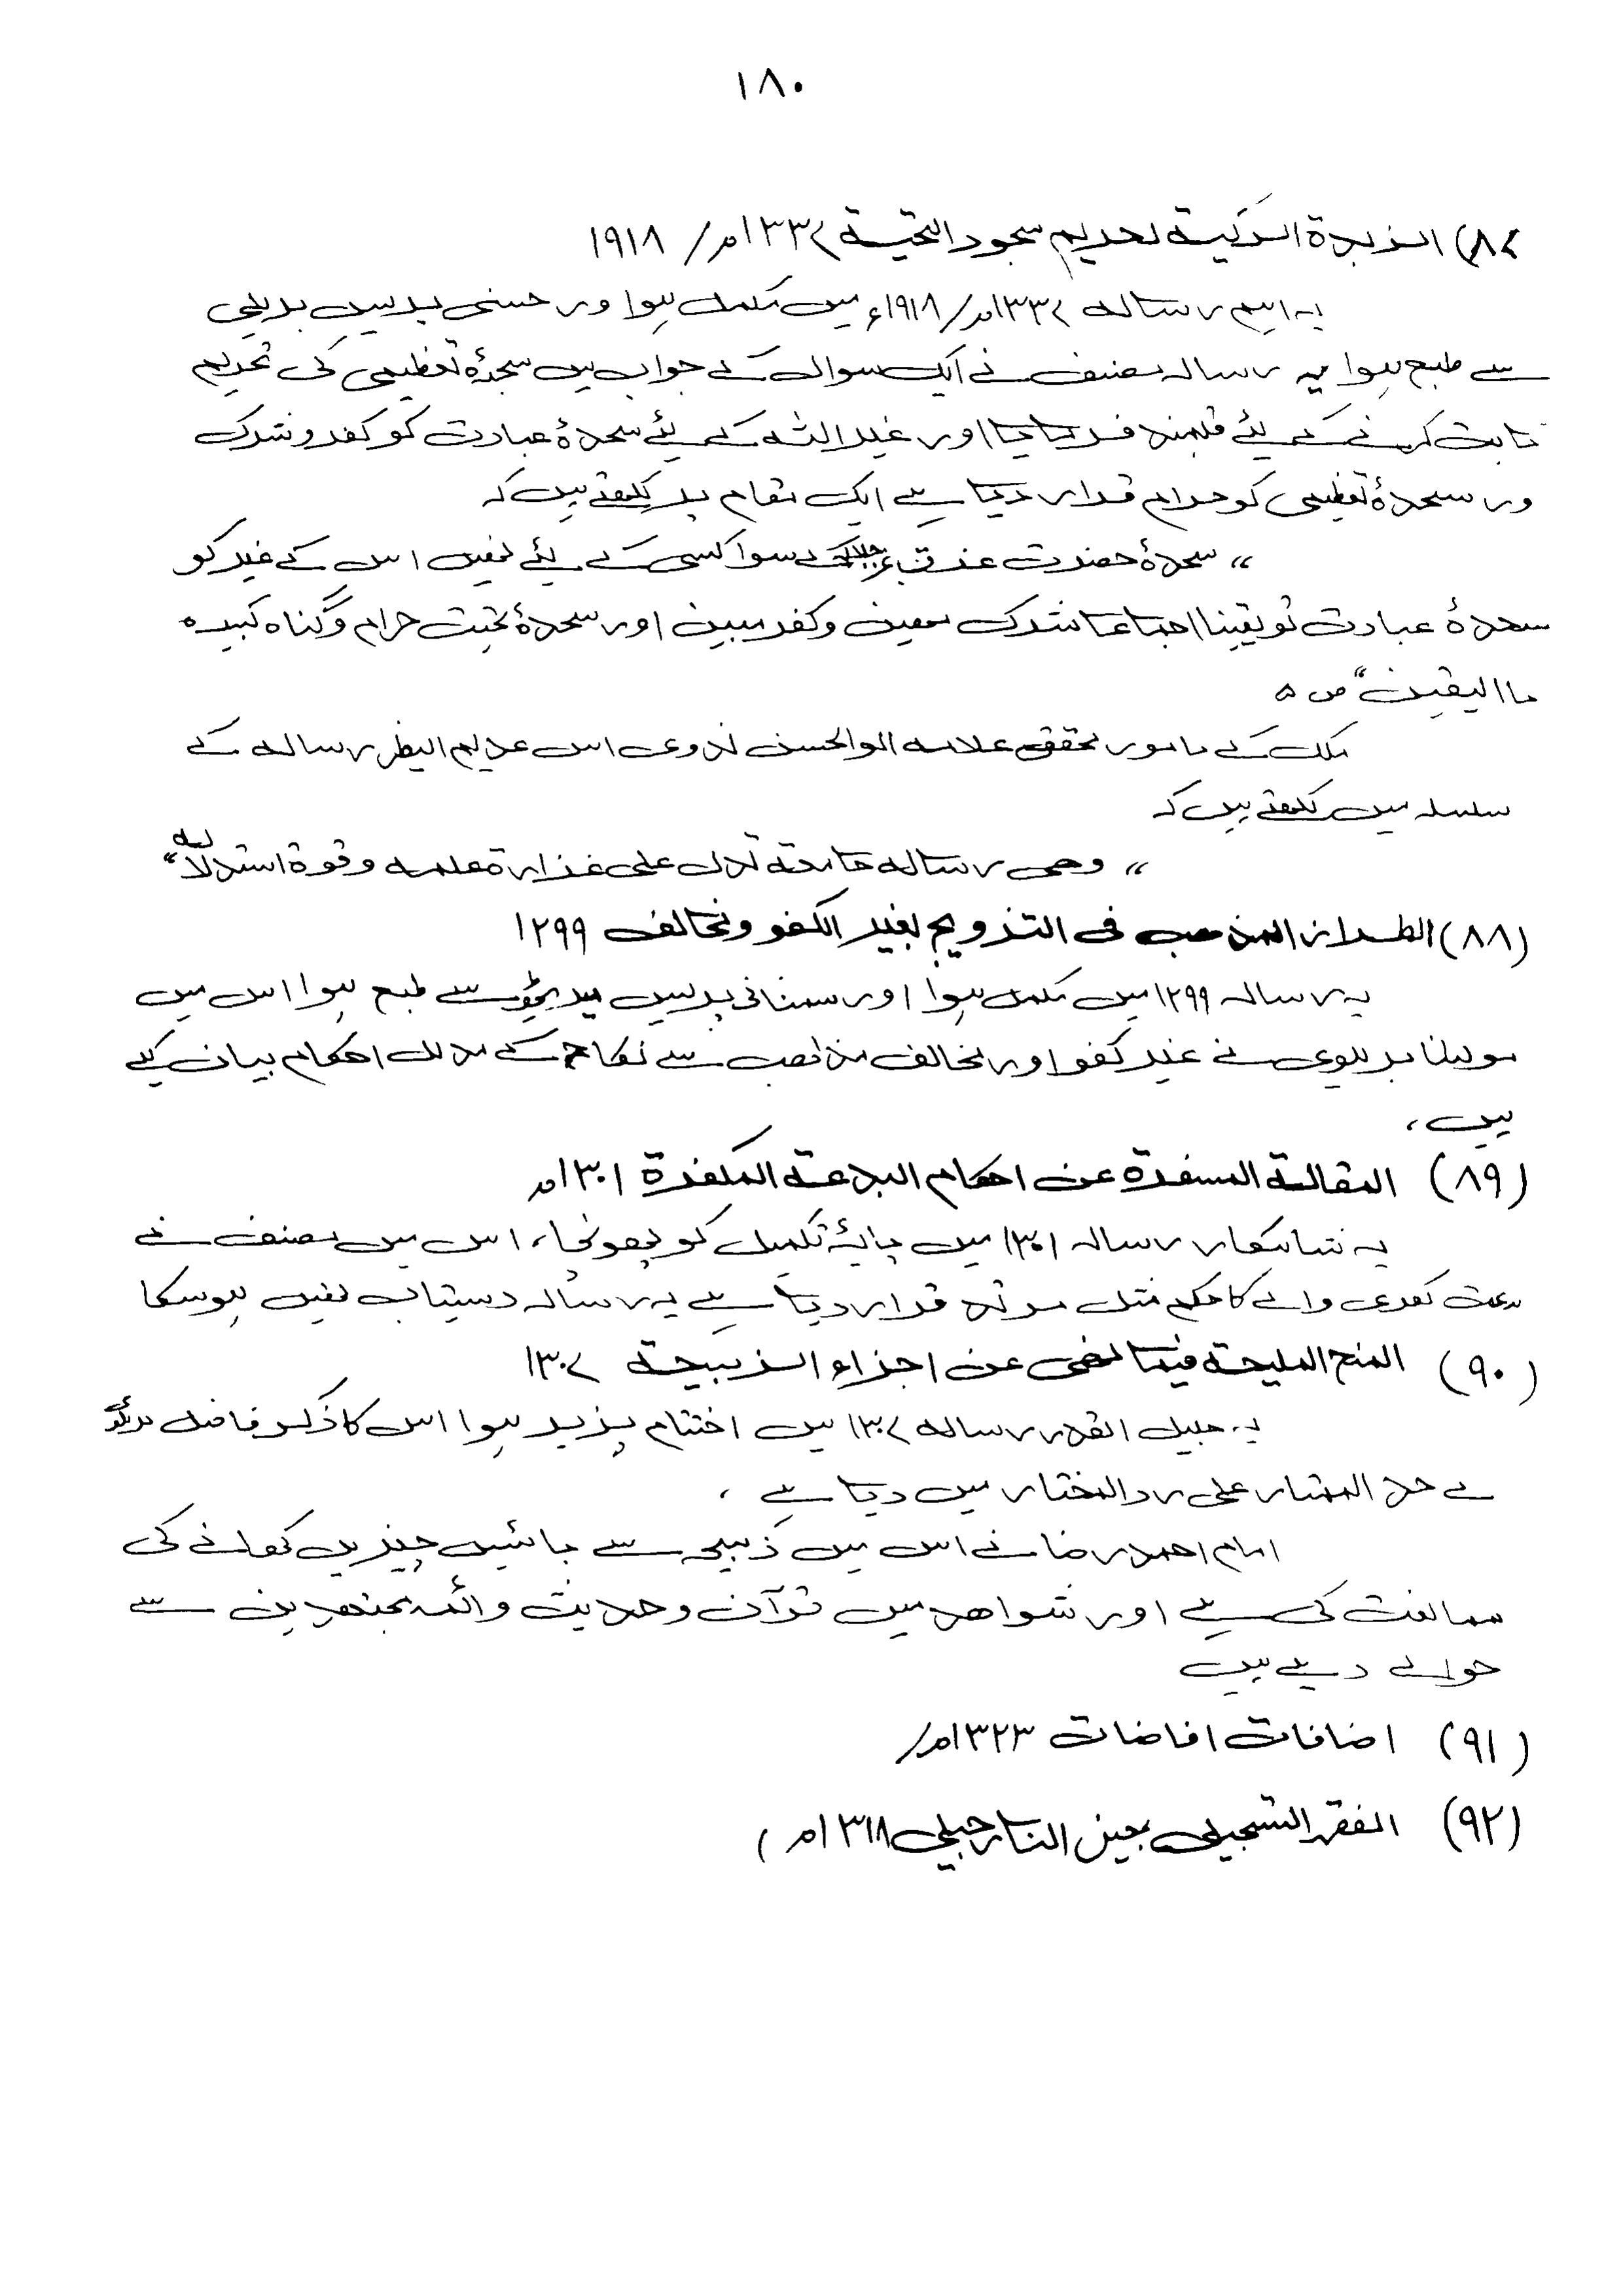 ۱۸۰
۸۷) الزبدة الزكية لحريم سجود التحية ۱۳۳۷ھ/ ۱۹۱۸
یہ اہم رسالہ ۱۳۳۷ھ/۱۹۱۸ء میں مکمل ہوا ور حسنی پریس بریلی
سے طبع ہوا یہ رسالہ مصنف نے ایک سوال کے جواب میں سجدۂ تعظیمی کی تحریم
ثابت کرنے کے لئے قلمبند فرمایا اور غیر اللہ کے لئے سجدۂ عبادت کو کفر و شرک
ور سجدۂ تعظیمی کو حرام قرار دیا ہے ایک مقام پر لکھتے ہیں کہ
„ سجدۂ حضرت عزت عزجلالہ کے سوا کسی کے لئے نہیں اس کے غیر کو
سجدۂ عبادت تو یقینا اجماعا شرک مھین و کفر مبین اور سجدۂ تحیت حرام و گناہ کبیرہ
با الیقین“ ص ۵
ملک کے نامور محقق علامہ ابوالحسن ندوی اس عدیم النظیر رسالہ کے
سلسلہ میں لکھتے ہیں کہ
„ وھی رسالہ جامعة تدل علی غزارة علمہ و قوة استدلالہ“
(۸۸) الطراز المذھب فی التزویج بغیر الکفو و مخالف ۱۲۹۹
یہ رسالہ ۱۲۹۹ میں مکمل ہوا اور سمنانی پریس میں سے طبع ہوا اس میں
مولینا بریلوی نے غیر کفو اور مخالف مذاھب سے نکاح کے مدلل احکام بیان کیے
ہیں ،
(۸۹) المقالة المسفرة عن احکام البدعة المکفرة ۱۳۰۱ھ
یہ شاہکار رسالہ ۱۳۰۱ میں پائۂ تکمیل کو پہونچا، اس میں مصنف نے
بدعت کفری والے کا حکم مثل مرتد قرار دیا ہے یہ رسالہ دستیاب نہیں ہوسکا
(۹۰) المنح الملیحة فیما نھی عن اجزاء الذبیحة ۱۳۰۷
یہ جلیل القدر رسالہ ۱۳۰۷ میں اختتام پذیر ہوا اس کا ذکر فاضل بریلوی
نے جد الممتار علی رد المختار میں دیا ہے ،
امام احمد رضا نے اس میں ذبیحہ سے بائیس چیزیں کھانے کی
ممانعت کی ہے اور شواھد میں قرآن و حدیث و ائمہ مجتھدین سے
حوالے دیے ہیں
(۹۱) اضافات افاضات ۱۳۲۳ھ/
(۹۲) الفقہ التسجیلی بعجین النارجیلی ۱۳۱۸ھ ،